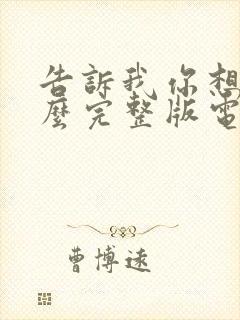 告訴我你想
麼完整版電
曹博遠